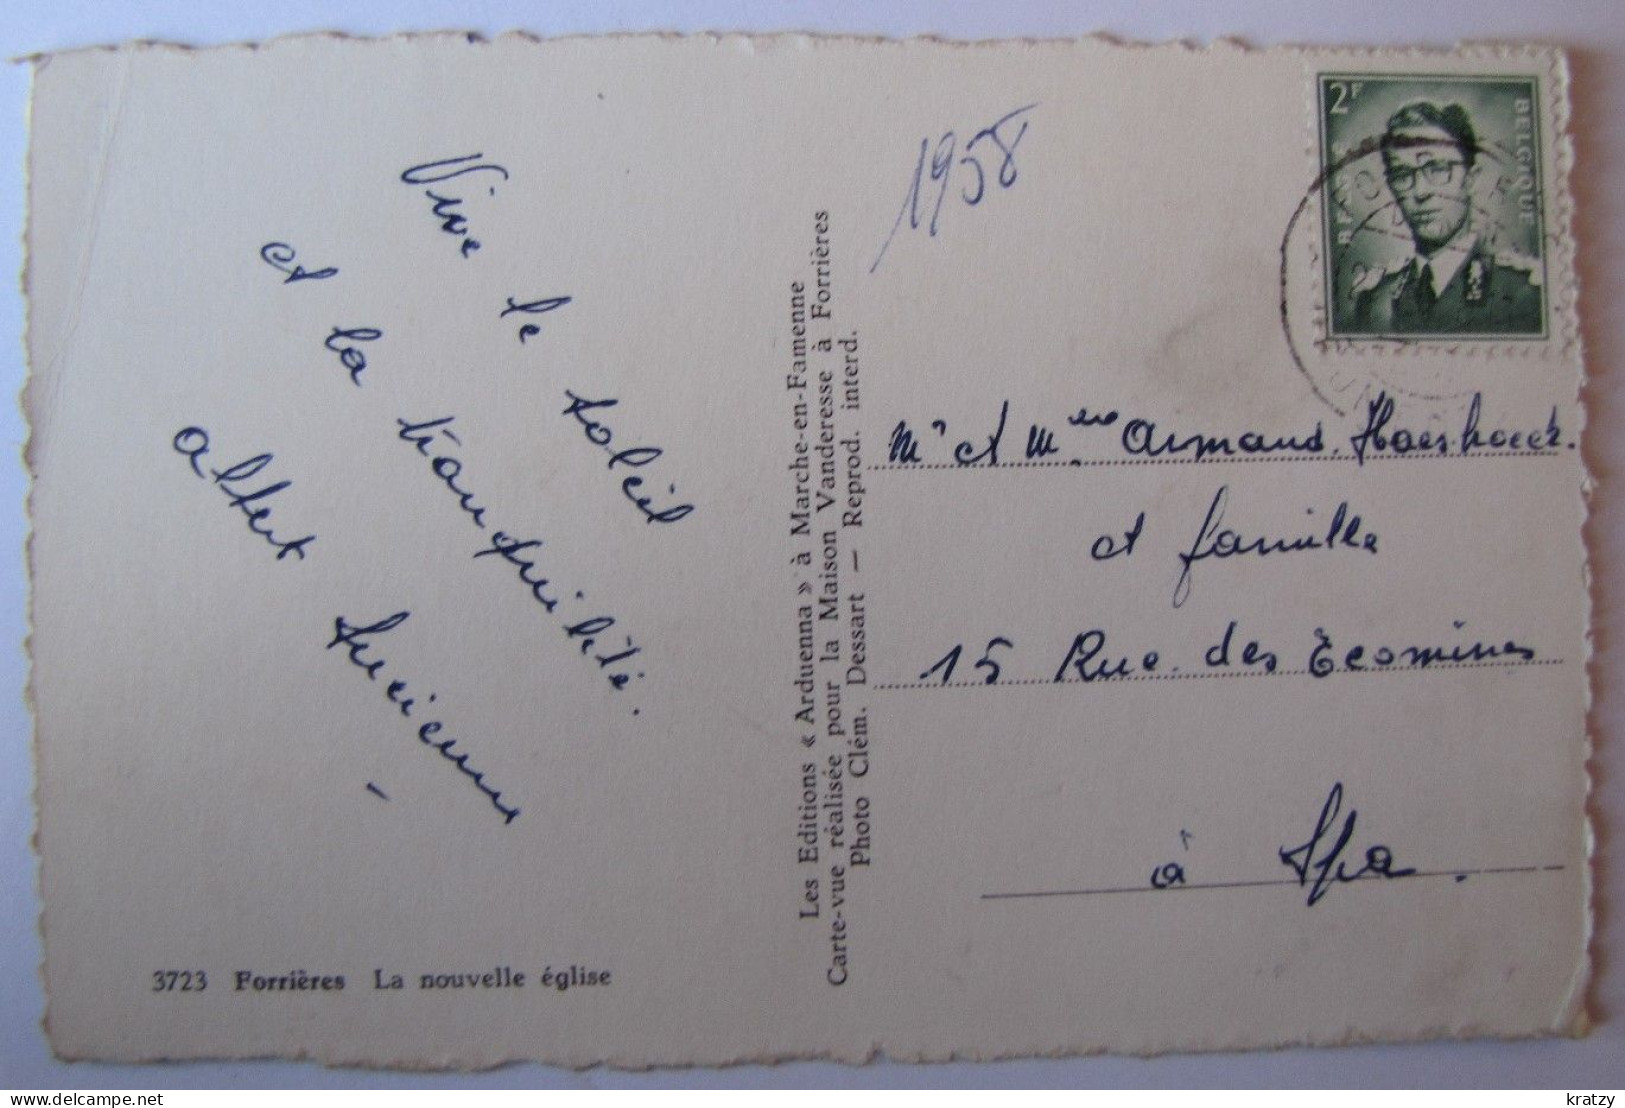 1958
2F
BELGIQUE
BELGIE
Vive le soleil
et la tranquilité.
Albert Lucienne
Les Editions « Arduenna » à Marche-en-Famenne
Carte-vue réalisée pour la Maison Vanderesse à Forrières
Photo Clém. Dessart — Reprod. interd.
Mr et Mme Armand
et famille
15 Rue des Ecomines
à Spa.
3723 Forrières La nouvelle église
kratzy